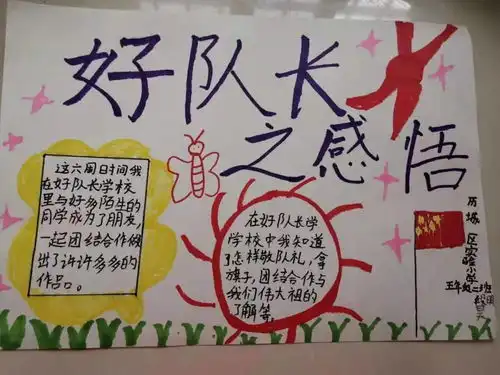 好队长
之感悟
这六周日时间我
在好队长学校
里与好多陌生的
同学成为了朋友,
一起团结合作做
出了许许多多的
作品。
在好队长学
学校中我知道
了怎样敬队礼,拿
旗子,团结合作与
我们伟大祖的
了解等。
历城
区实验小学
五年级二班